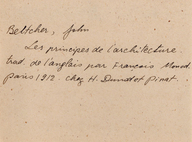 Beltcher, John
Les principes de l'architecture
trad. de l'anglais par François Monod
Paris 1912. chez H. Dunod et Pinat.